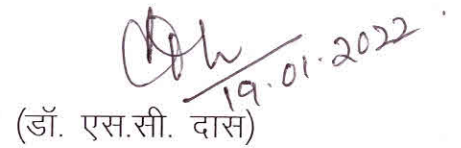 19.01.2022
(डॉ. एस.सी. दास)